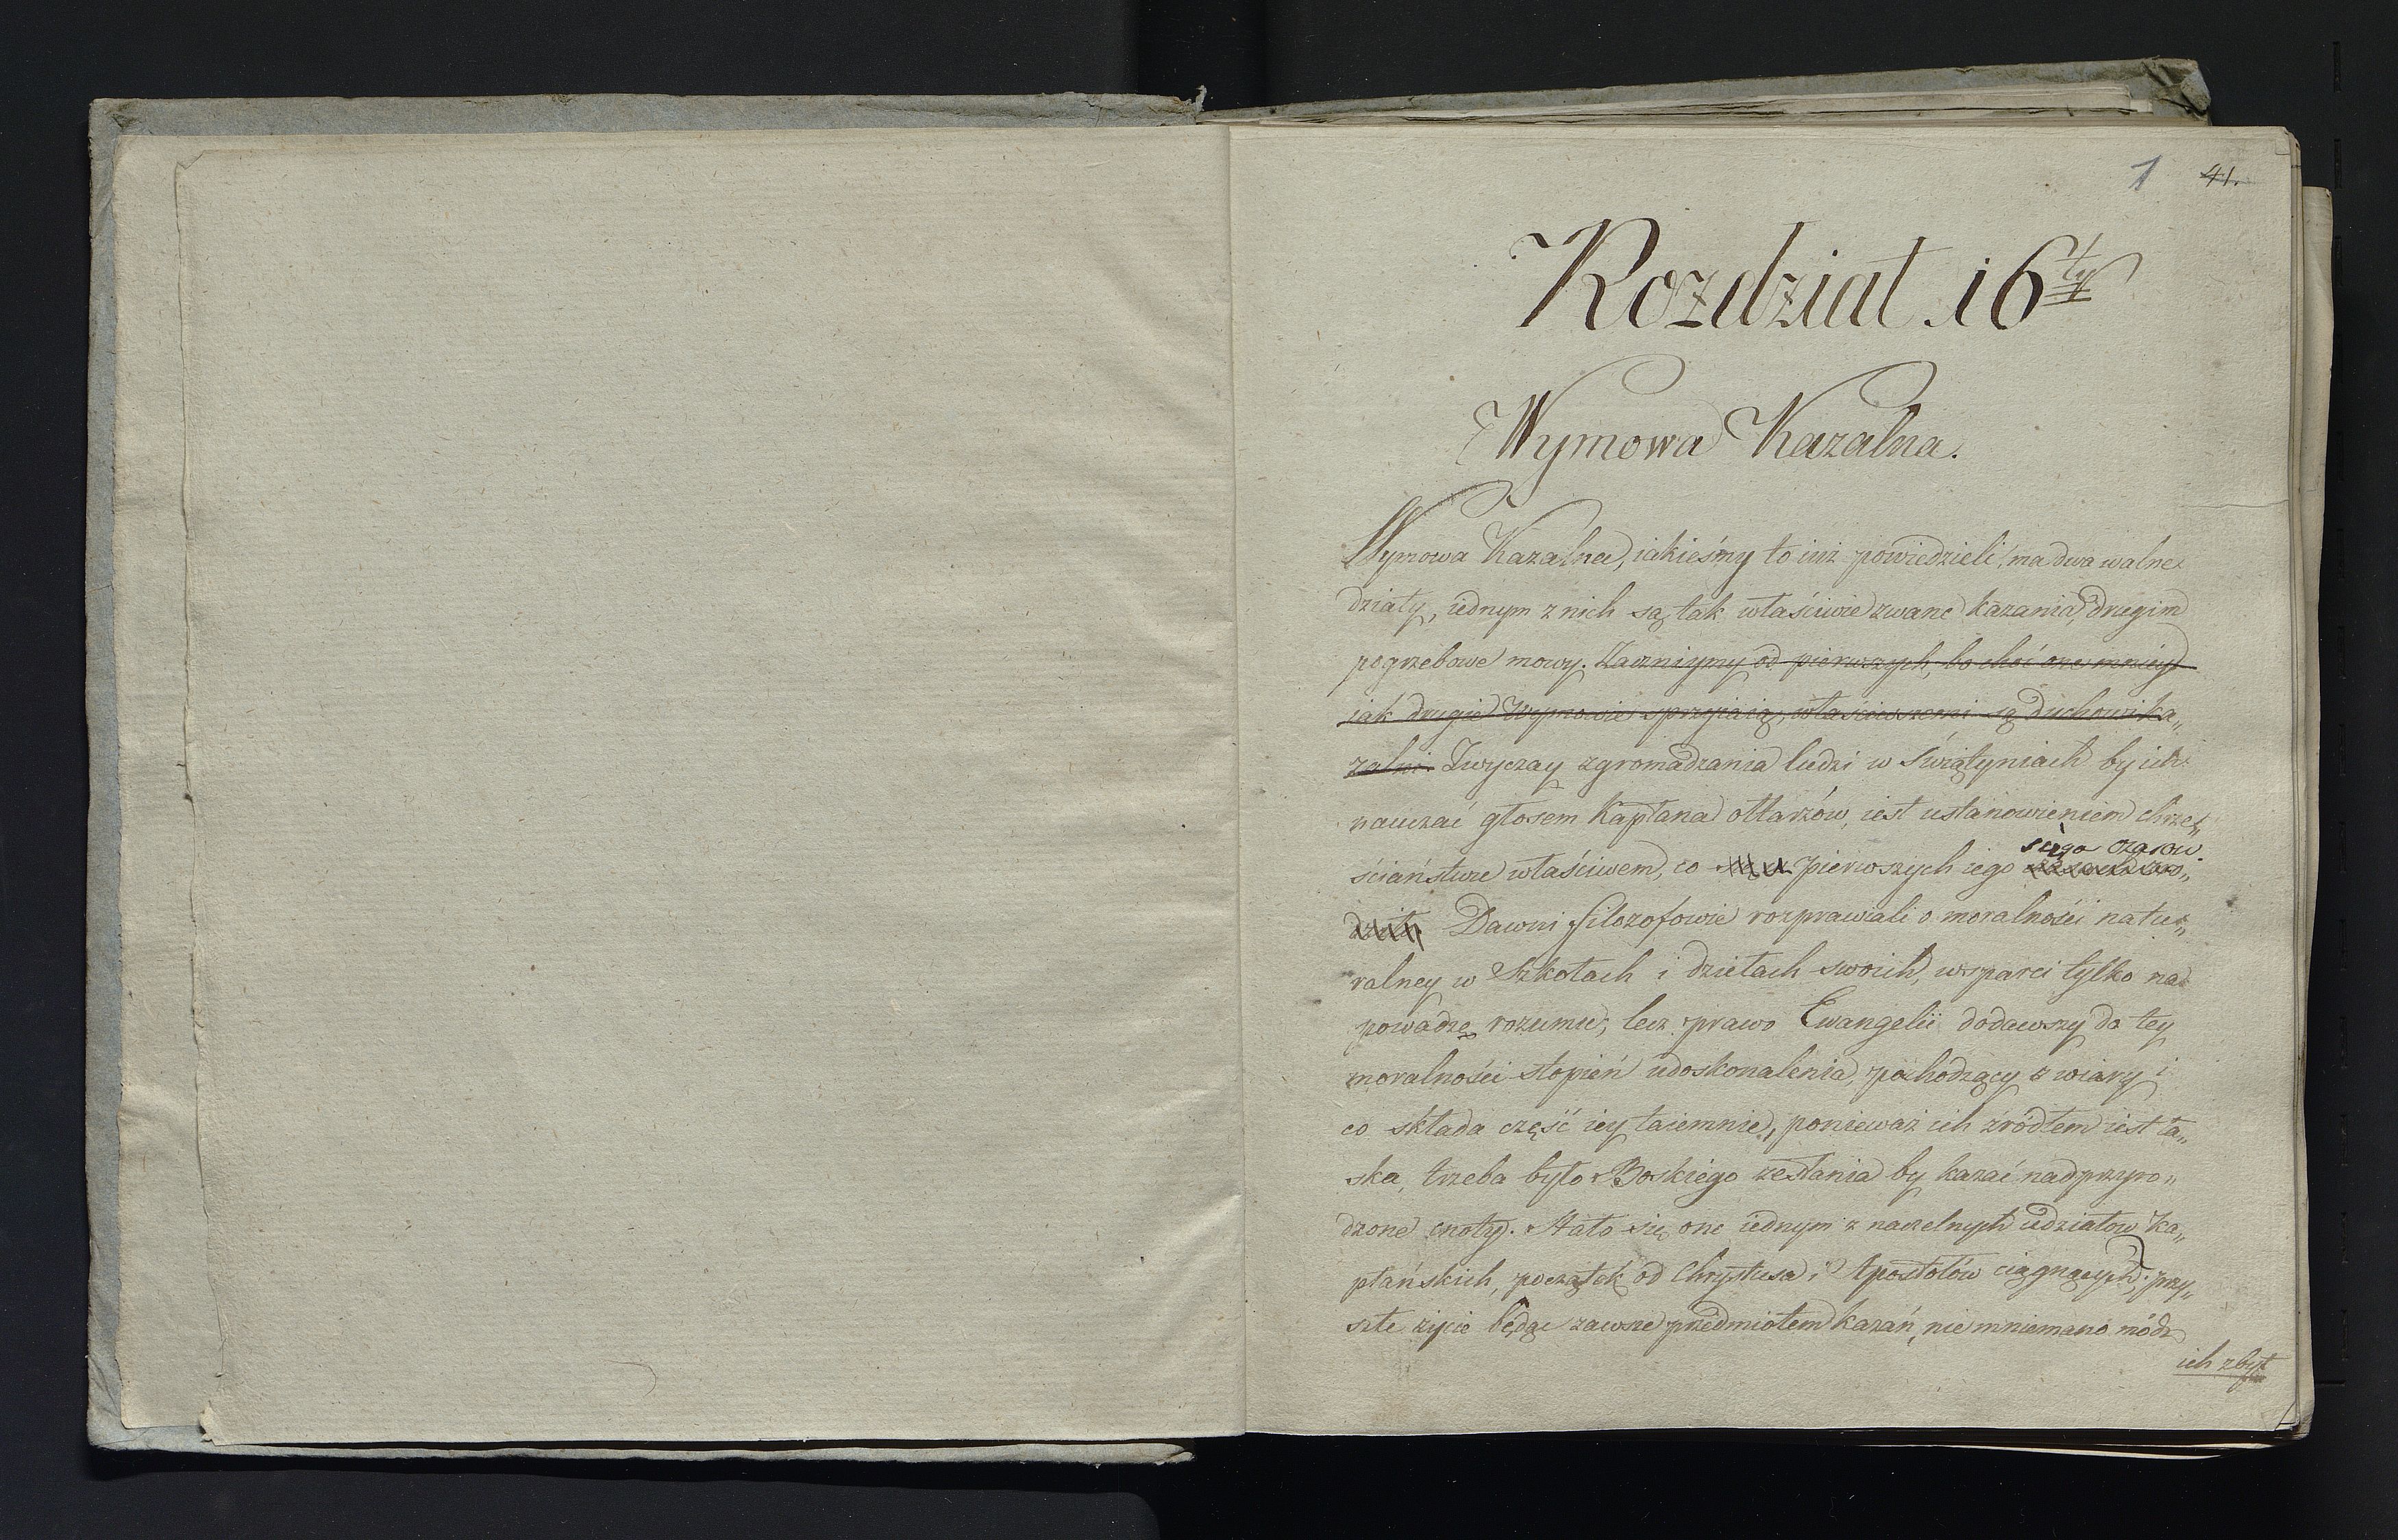 1 41.
Rozdział 16ty
Wymowa Kazalna.
Wymowa Kazalna, iakieśmy to iuż powiedzieli, ma dwa walne
działy, iednym z nich są tak właściwie zwane kazania, drugim
pogrzebowe mowy. Zacznijmy od pierwszych, bo choć one mniey
iak drugie Wymowie sprzyiaią, właściwszemi są duchowi ka„
zalni. Zwyczay zgromadzania ludzi w świątyniach by ich
nauczać głosem Kapłana ołtarzów, iest ustanowieniem chrze„
sięga czasów.
ściaństwu właściwem, co pierwszych iego
Dawni filozofowie rozprawiali o moralności natu„
ralney w Szkołach i dziełach swoich, wsparci tylko na
powadze rozumu; lecz prawo Ewangelii dodawszy do tey
moralności stopień udoskonalenia, pochodzący z wiary i
co składa część iey taiemnic, ponieważ ich źródłem iest ła„
ska, trzeba było Boskiego zesłania by kazać nadprzyro„
dzone cnoty. Stało się one iednym z naczelnych udziałow Ka„
płańskich, początek od Chrystusa i Apostołów ciągnących; przy„
szłe życie będąc zawsze przedmiotem kazań, nie mniemano módz
ich zbyt